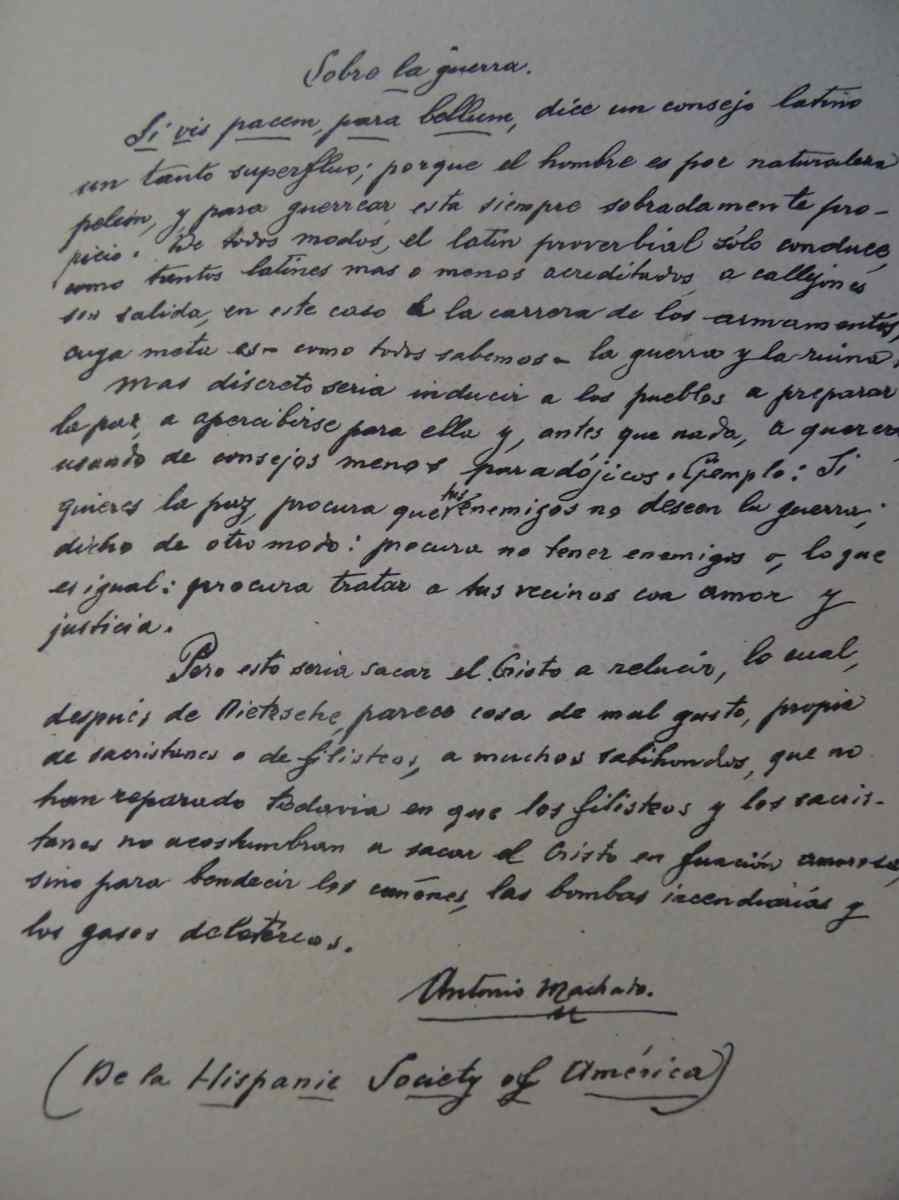 Sobre la guerra.
Si vis pacem, para bellum, dice un consejo latino
un tanto superfluo; porque el hombre es por naturaleza
peleón, y para guerrear esta siempre sobradamente pro-
picio. De todos modos, el latin proverbial sólo conduce,
como tantos latines mas o menos acreditados, a callejones
sin salida, en este caso a la carrera de los armamentos,
cuya meta es - como todos sabemos - la guerra y la ruina.
Mas discreto seria inducir a los pueblos a preparar
la paz, a apercibirse para ella y, antes que nada, a quererla
usando de consejos menos paradójicos. Ejemplo: Si
quieres la paz, procura que tus enemigos no deseen la guerra;
dicho de otro modo: procura no tener enemigos o, lo que
es igual: procura tratar a tus vecinos con amor y
justicia.
Pero esto seria sacar el Cristo a relucir, lo cual,
después de Nietzsche, parece cosa de mal gusto, propia
de sacristanes o de filisteos, a muchos sabihondos, que no
han reparado todavia en que los filisteos y los sacris-
tanes no acostumbran a sacar el Cristo en función amorosa,
sino para bendecir los cañones, las bombas incendiarias y
los gases deletéreos.
Antonio Machado.
(De la Hispanic Society of América)